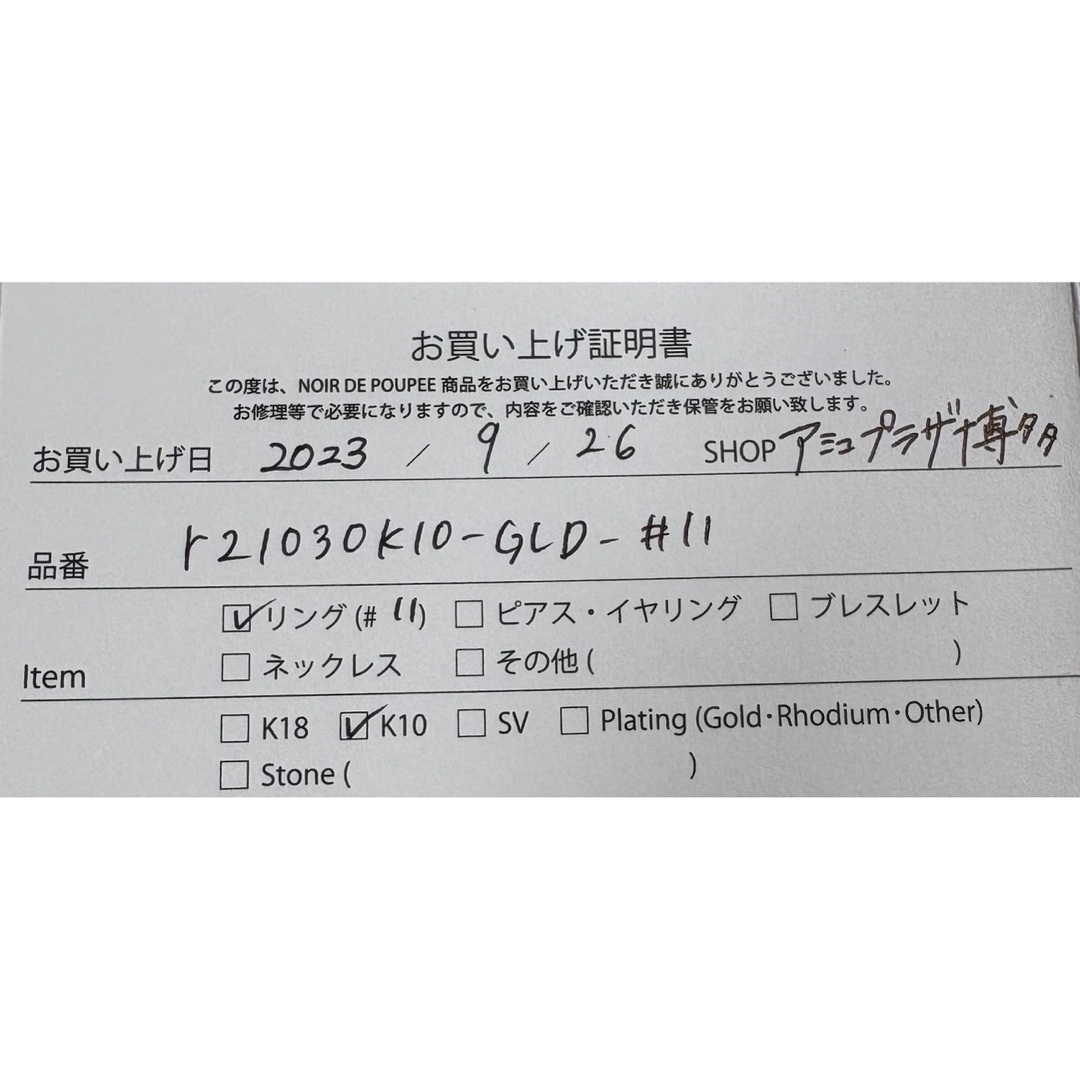 お買い上げ証明書
この度は、NOIR DE POUPEE 商品をお買い上げいただき誠にありがとうございました。
お修理等で必要になりますので、内容をご確認いただき保管をお願い致します。
お買い上げ日 2023 / 9 / 26 SHOP アミュプラザ博多
品番 r21030K10-GLD-#11
リング(# 11) ピアス・イヤリング ブレスレット
Item ネックレス その他 ( )
K18 K10 SV Plating (Gold・Rhodium・Other)
Stone ( )